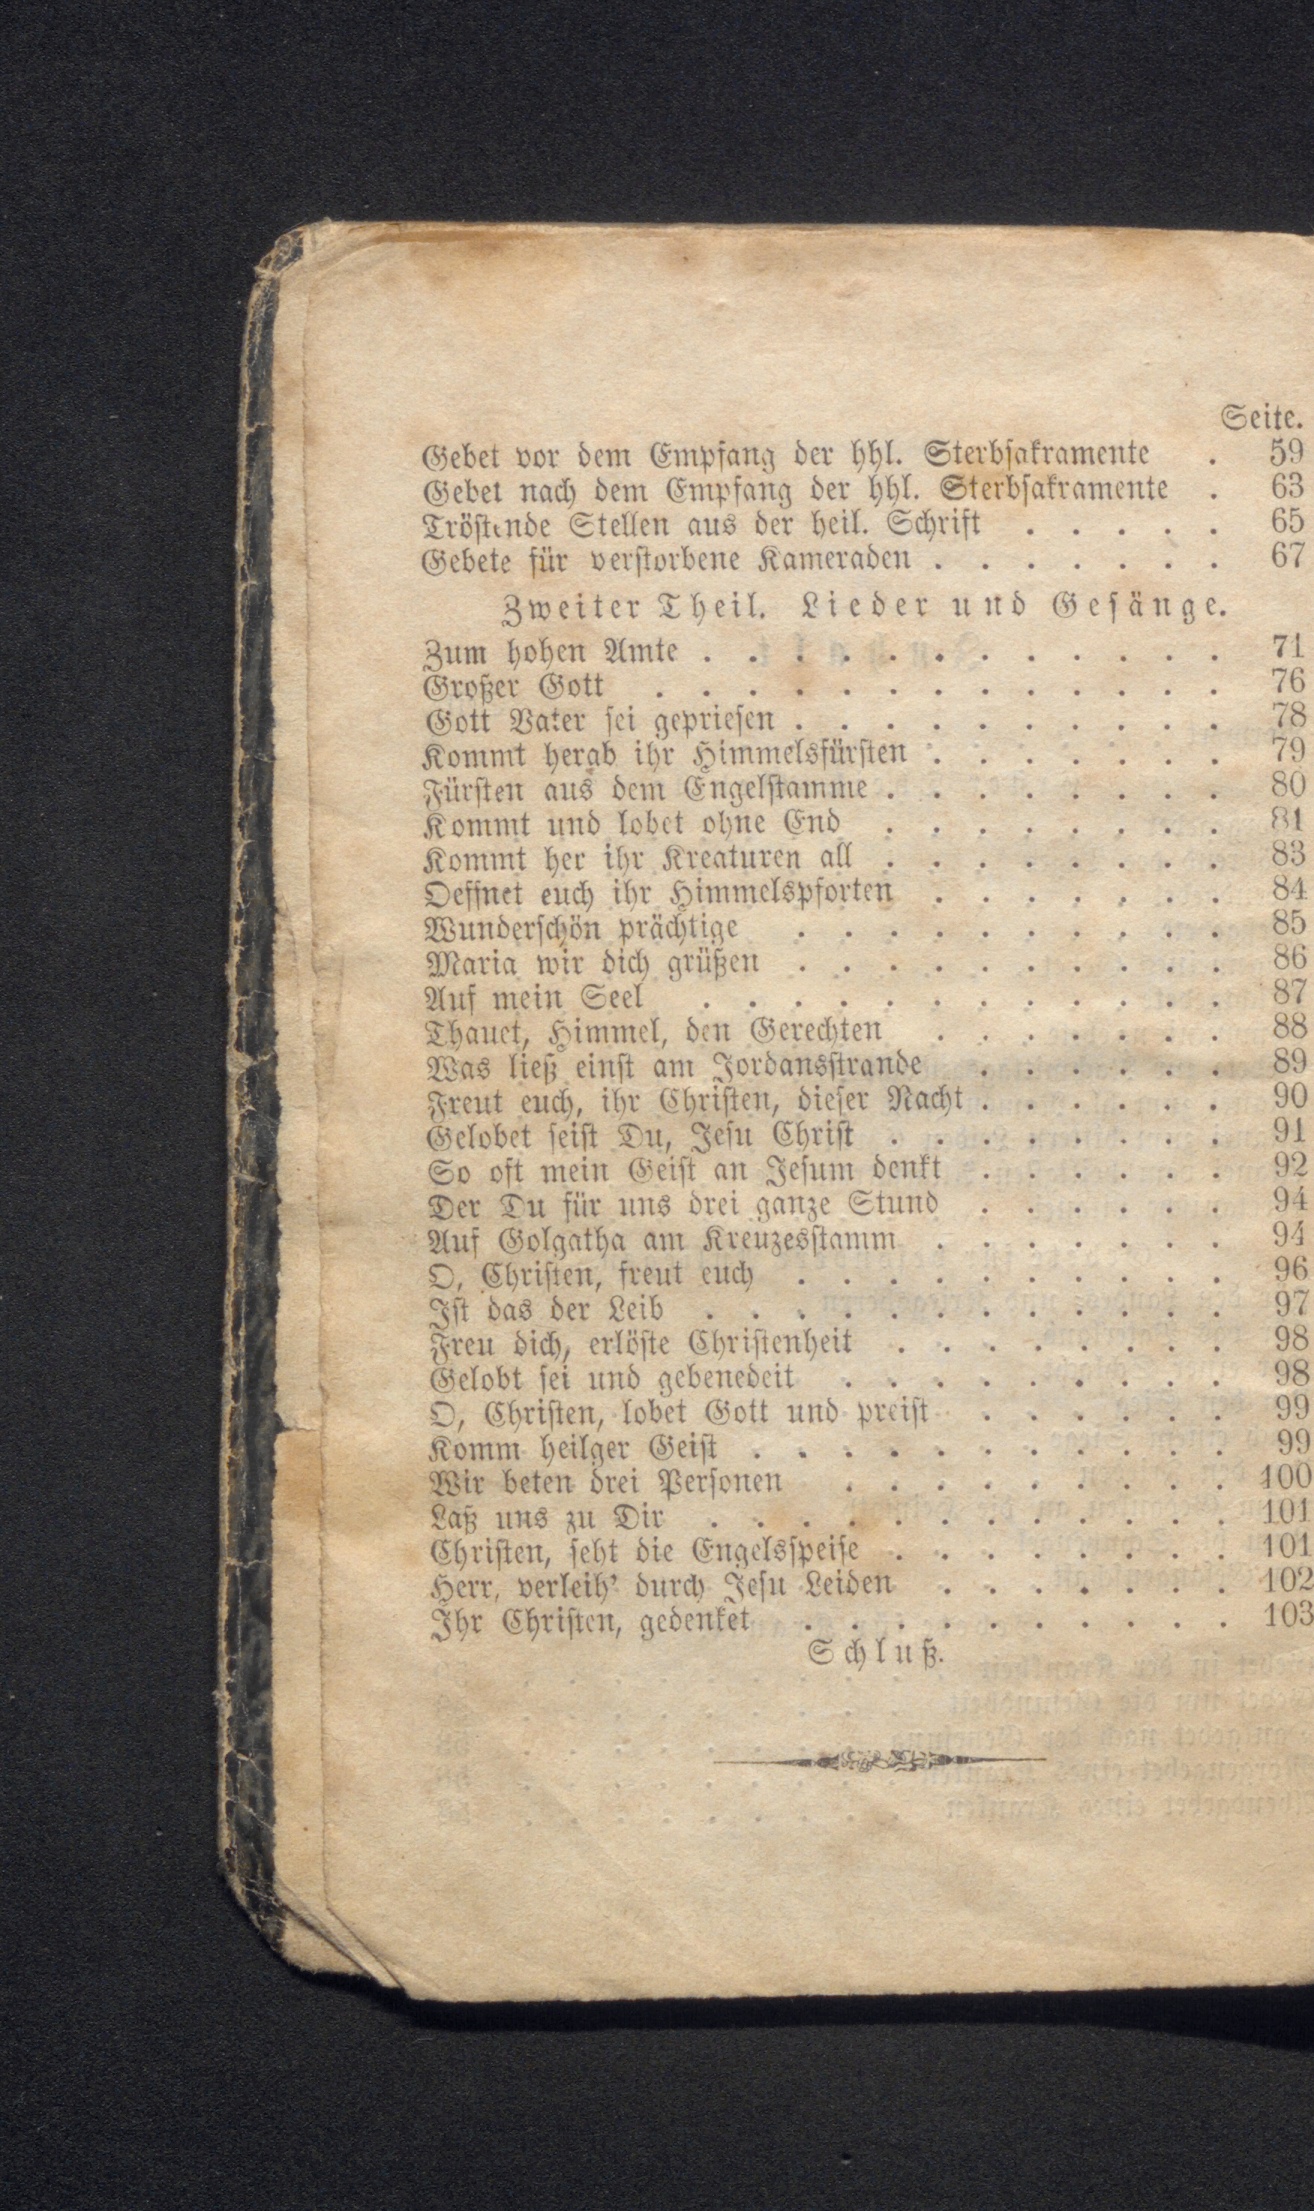 Seite.
Gebet vor dem Empfang der hhl. Sterbsakramente . 59
Gebet nach dem Empfang der hhl. Sterbsakramente . 63
Tröstende Stellen aus der heil. Schrift . . . . . 65
Gebete für verstorbene Kameraden . . . . . . . 67
Zweiter Theil. Lieder und Gesänge.
Zum hohen Amte . . . . . . . . . . . . 71
Großer Gott . . . . . . . . . . . . . 76
Gott Vater sei gepriesen . . . . . . . . . . 78
Kommt herab ihr Himmelsfürsten . . . . . . . 79
Fürsten aus dem Engelstamme . . . . . . . . 80
Kommt und lobet ohne End . . . . . . . . 81
Kommt her ihr Kreaturen all . . . . . . . . 83
Oeffnet euch ihr Himmelspforten . . . . . . . 84
Wunderschön prächtige . . . . . . . . . . 85
Maria wir dich grüßen . . . . . . . . . . 86
Auf mein Seel . . . . . . . . . . . . 87
Thauet, Himmel, den Gerechten . . . . . . . 88
Was ließ einst am Jordansstrande . . . . . . 89
Freut euch, ihr Christen, dieser Nacht . . . . . . 90
Gelobet seist Du, Jesu Christ . . . . . . . . 91
So oft mein Geist an Jesum denkt . . . . . . 92
Der Du für uns drei ganze Stund . . . . . . 94
Auf Golgatha am Kreuzesstamm . . . . . . . 94
O, Christen, freut euch . . . . . . . . . . 96
Ist das der Leib . . . . . . . . . . . . 97
Freu dich, erlöste Christenheit . . . . . . . . 98
Gelobt sei und gebenedeit . . . . . . . . . 98
O, Christen, lobet Gott und preist . . . . . . 99
Komm heilger Geist . . . . . . . . . . . 99
Wir beten drei Personen . . . . . . . . . 100
Laß uns zu Dir . . . . . . . . . . . . 101
Christen, seht die Engelsspeise . . . . . . . . 101
Herr, verleih' durch Jesu Leiden . . . . . . . 102
Ihr Christen, gedenket . . . . . . . . . . 103
Schluß.